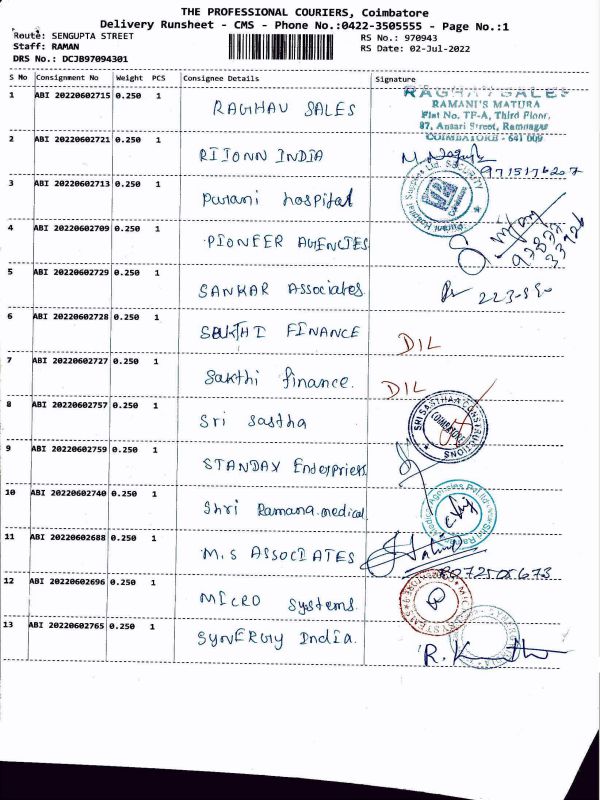 THE PROFESSIONAL COURIERS, Coimbatore
Delivery Runsheet - CMS - Phone No.:0422-3505555 - Page No.:1
Route: SENGUPTA STREET
Staff: RAMAN
DRS No.: DCJB97094301
RS No.: 970943
RS Date: 02-Jul-2022
S No Consignment No Weight PCS Consignee Details Signature
1 ABI 20220602715 0.250 1 RAGHAV SALES
RAGHAV SALES
RAMANI'S MATURA
Flat No. TF-A, Third Floor,
87, Ansari Street, Ramnagar
COIMBATORE - 641 009
2 ABI 20220602721 0.250 1 RIJONN INDIA
3 ABI 20220602713 0.250 1 Purani hospital
Purani Hospital Supplies Ltd. SECURITY
4 ABI 20220602709 0.250 1 PIONEER AGENCIES
5 ABI 20220602729 0.250 1 SANKAR Associates
6 ABI 20220602728 0.250 1 SAKTHI FINANCE DIL
7 ABI 20220602727 0.250 1 Sakthi finance. DIL
8 ABI 20220602757 0.250 1 Sri Sastha
SRI SASTHAA CONSTRUCTIONS
COIMBATORE
9 ABI 20220602759 0.250 1 STANDAX Enterpriers
10 ABI 20220602740 0.250 1 Shri Ramana.medical
11 ABI 20220602688 0.250 1 M.S ASSOCIATES
12 ABI 20220602696 0.250 1 MICRO Systems
13 ABI 20220602765 0.250 1 SYNERGY India.